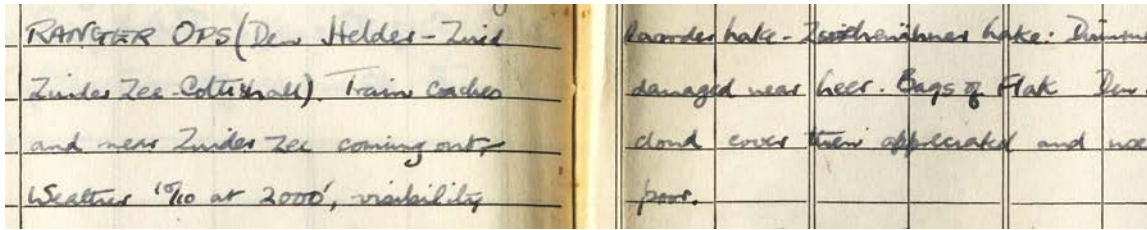 RANGER OPS (Den Helder - Zuid
Zuider Zee - Coltishall). Train coaches
and near Zuider Zee coming out,
Weather 10/10 at 2000', visibility
Lake - Lake:
damaged near Leer. Bags of Flak Den
cloud cover then appreciated and
poor.